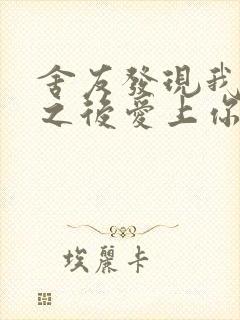 舍友發現我
之後愛上你
埃麗卡